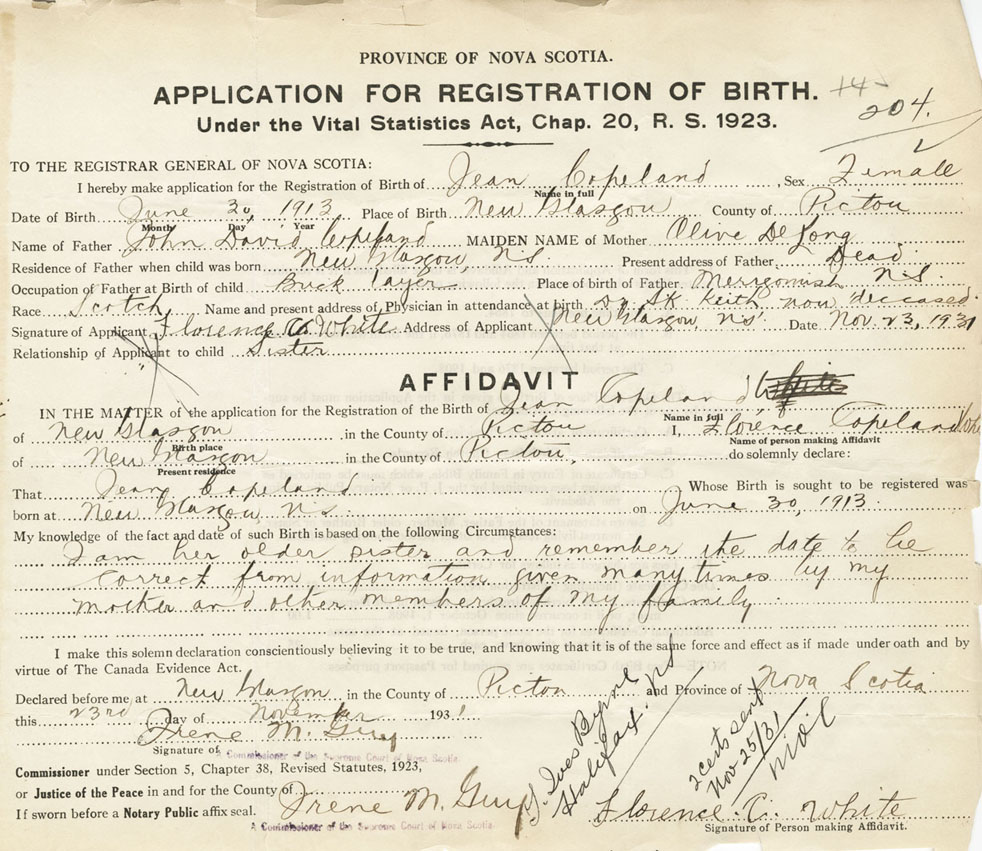 PROVINCE OF NOVA SCOTIA.
APPLICATION FOR REGISTRATION OF BIRTH.
204.
Under the Vital Statistics Act, Chap. 20, R. S. 1923.
TO THE REGISTRAR GENERAL OF NOVA SCOTIA:
I hereby make application for the Registration of Birth of Jean Copeland, Sex Female
Name in full
Date of Birth June 30, 1913 Place of Birth New Glasgow County of Pictou
Month Day Year
Name of Father John David Copeland MAIDEN NAME of Mother Olive De Long
Residence of Father when child was born New Glasgow, N.S. Present address of Father Dead
Occupation of Father at Birth of child Brick layer Place of birth of Father Merigomish N.S.
Race Scotch Name and present address of Physician in attendance at birth Dr. S K Keith now deceased.
Signature of Applicant Florence C. White Address of Applicant New Glasgow N.S. Date Nov. 23, 1931
Relationship of Applicant to child Sister
AFFIDAVIT
IN THE MATTER of the application for the Registration of the Birth of Jean Copeland
Name in full
of New Glasgow in the County of Pictou I, Florence Copeland
Birth place Name of person making Affidavit
of New Glasgow in the County of Pictou, do solemnly declare:
Present residence
That Jean Copeland Whose Birth is sought to be registered was
born at New Glasgow N.S. on June 30, 1913
My knowledge of the fact and date of such Birth is based on the following Circumstances:
I am her older sister and remember the date to be
correct from information given many times by my
mother and other members of my family
I make this solemn declaration conscientiously believing it to be true, and knowing that it is of the same force and effect as if made under oath and by
virtue of The Canada Evidence Act.
Declared before me at New Glasgow in the County of Pictou and Province of Nova Scotia
this 23rd day of November 1931
Irene M. Guy
Signature of
A Commissioner of the Supreme Court of Nova Scotia
Commissioner under Section 5, Chapter 38, Revised Statutes, 1923,
or Justice of the Peace in and for the County of Irene M. Guy
If sworn before a Notary Public affix seal.
A Commissioner of the Supreme Court of Nova Scotia
Halifax. NS
2 cents sent
Nov 25/31
Florence. C. White
Signature of Person making Affidavit.